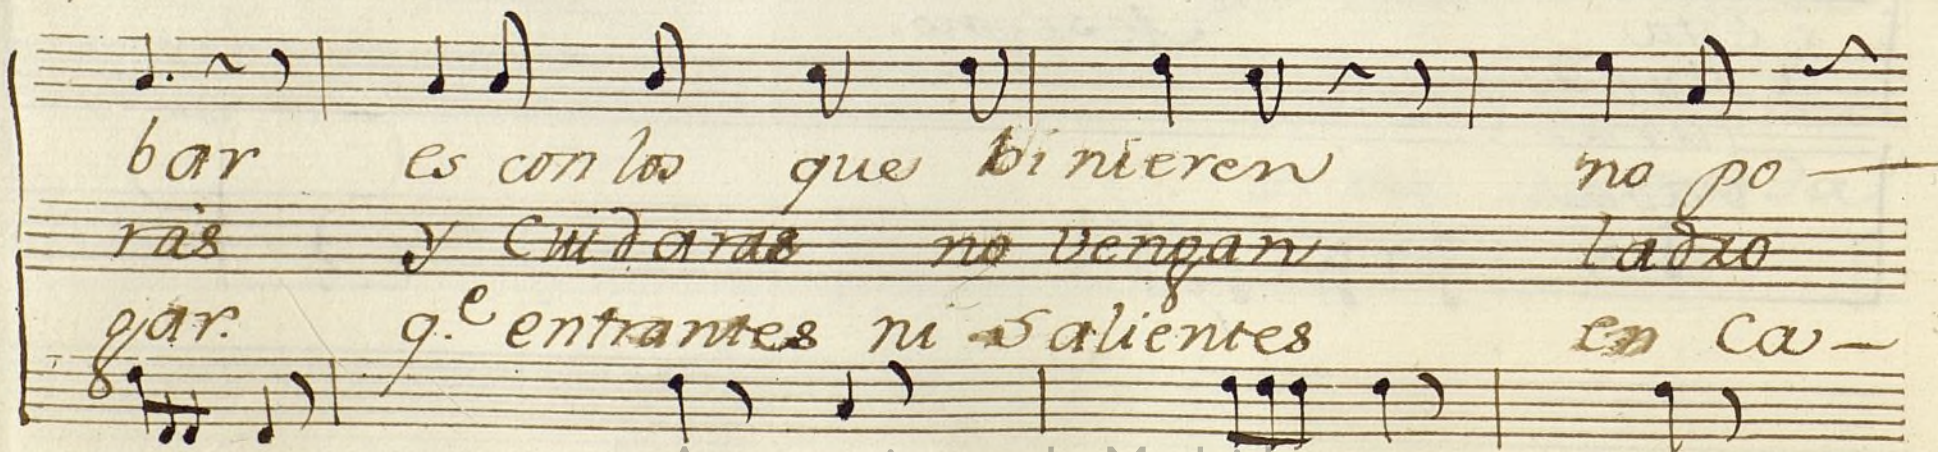 bar es con los que binieren no po
ràs y Cuidaras no vengan ladro
gar. q.e entrantes ni Salientes en Ca